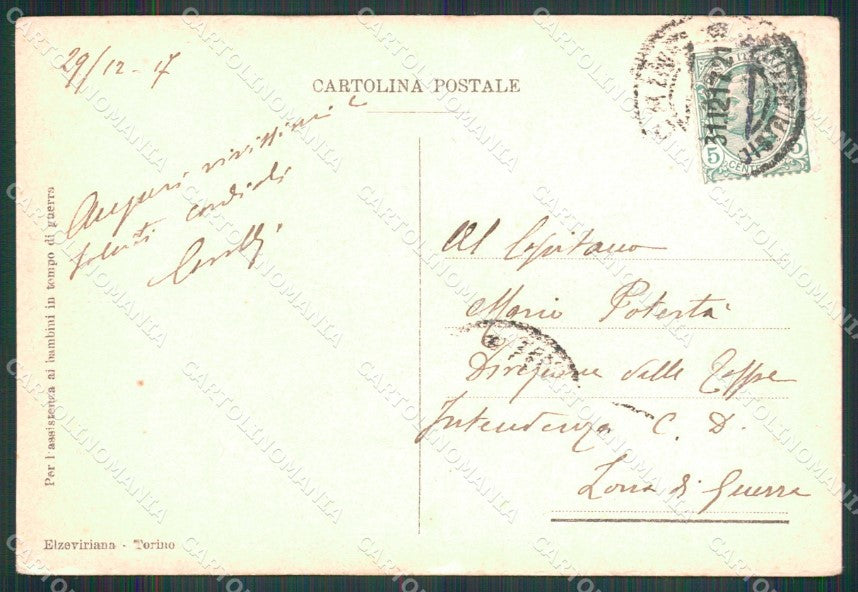 29/12-17
CARTOLINA POSTALE
Auguri vivissimi e
saluti cordiali
Al Capitano
Mario Potestà
Direzione delle Tappe
Intendenza C. D.
Zona di Guerra
Per l'assistenza ai bambini in tempo di guerra
Elzeviriana - Torino
31.12.17.21
5 5
CENT
CARTOLINOMANIA